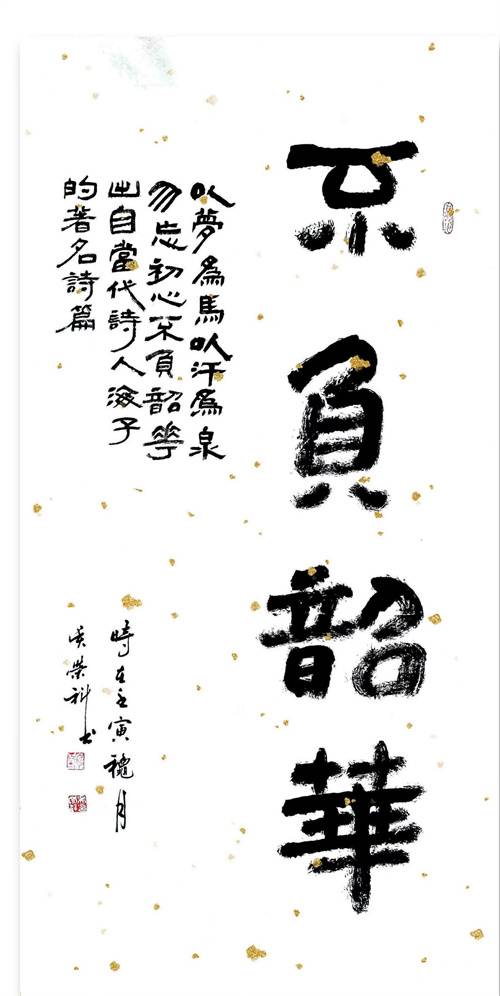 不負韶華
以夢為馬以汗為泉
勿忘初心不負韶華
出自當代詩人海子
的著名詩篇
時在壬寅穐月
吴榮科书